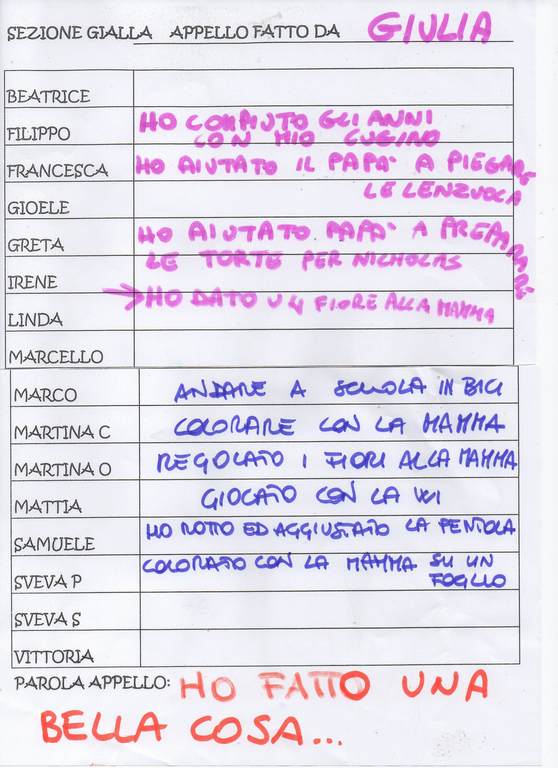 SEZIONE GIALLA APPELLO FATTO DA GIULIA
BEATRICE
FILIPPO HO COMPIUTO GLI ANNI
CON MIO CUGINO
FRANCESCA HO AIUTATO IL PAPA' A PIEGARE
LE LENZUOLA
GIOELE
GRETA HO AIUTATO PAPA' A PREPARARE
LE TORTE PER NICHOLAS
IRENE
→ HO DATO UN FIORE ALLA MAMMA
LINDA
MARCELLO
MARCO ANDARE A SCUOLA IN BICI
MARTINA C COLORARE CON LA MAMMA
MARTINA O REGOLATO I FIORI ALLA MAMMA
MATTIA GIOCATO CON LA WI
SAMUELE HO ROTTO ED AGGIUSTATO LA PENTOLA
SVEVA P COLORATO CON LA MAMMA SU UN
FOGLIO
SVEVA S
VITTORIA
PAROLA APPELLO: HO FATTO UNA
BELLA COSA...